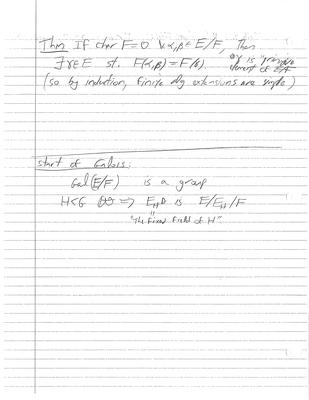 Thm If char F=0 & α,β ∈ E/F, Then
∃γ∈E st. F(α,β)=F(γ). "γ is primitive
element of E/F"
(so by induction, finite alg extensions are simple)
start of Galois:
Gal(E/F) is a group
H<G ⇒ E_H is E/E_H/F
"the Fixed Field of H"